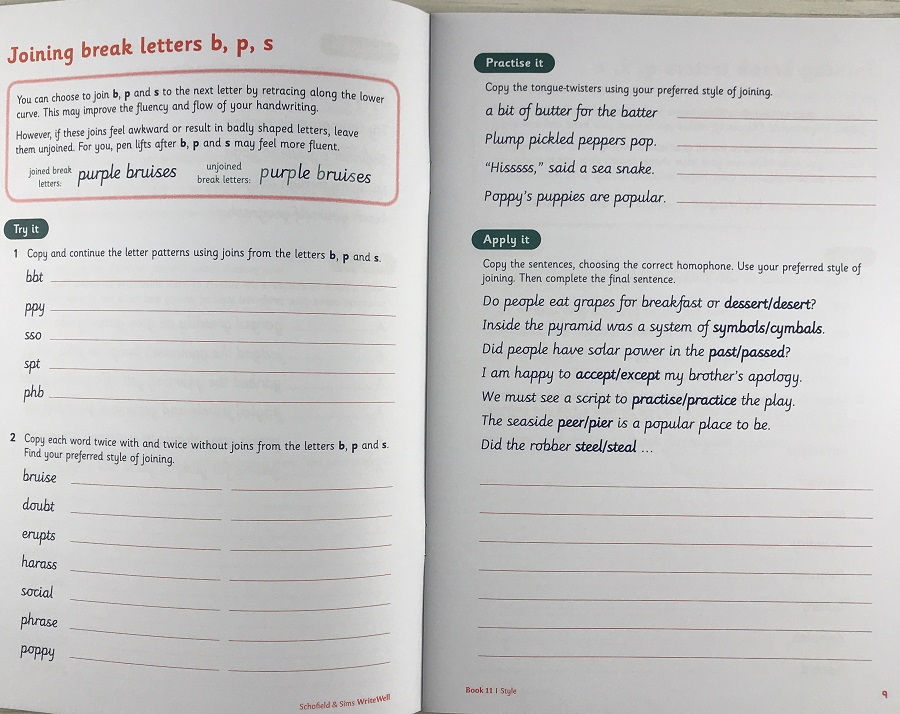 Joining break letters b, p, s
You can choose to join b, p and s to the next letter by retracing along the lower
curve. This may improve the fluency and flow of your handwriting.
However, if these joins feel awkward or result in badly shaped letters, leave
them unjoined. For you, pen lifts after b, p and s may feel more fluent.
joined break letters: purple bruises unjoined break letters: purple bruises
Try it
1 Copy and continue the letter patterns using joins from the letters b, p and s.
bbt
ppy
sso
spt
phb
2 Copy each word twice with and twice without joins from the letters b, p and s.
Find your preferred style of joining.
bruise
doubt
erupts
harass
social
phrase
poppy
Schofield & Sims WriteWell
Practise it
Copy the tongue-twisters using your preferred style of joining.
a bit of butter for the batter
Plump pickled peppers pop.
“Hisssss,” said a sea snake.
Poppy’s puppies are popular.
Apply it
Copy the sentences, choosing the correct homophone. Use your preferred style of
joining. Then complete the final sentence.
Do people eat grapes for breakfast or dessert/desert?
Inside the pyramid was a system of symbols/cymbals.
Did people have solar power in the past/passed?
I am happy to accept/except my brother’s apology.
We must see a script to practise/practice the play.
The seaside peer/pier is a popular place to be.
Did the robber steel/steal ...
Book 11 | Style
9